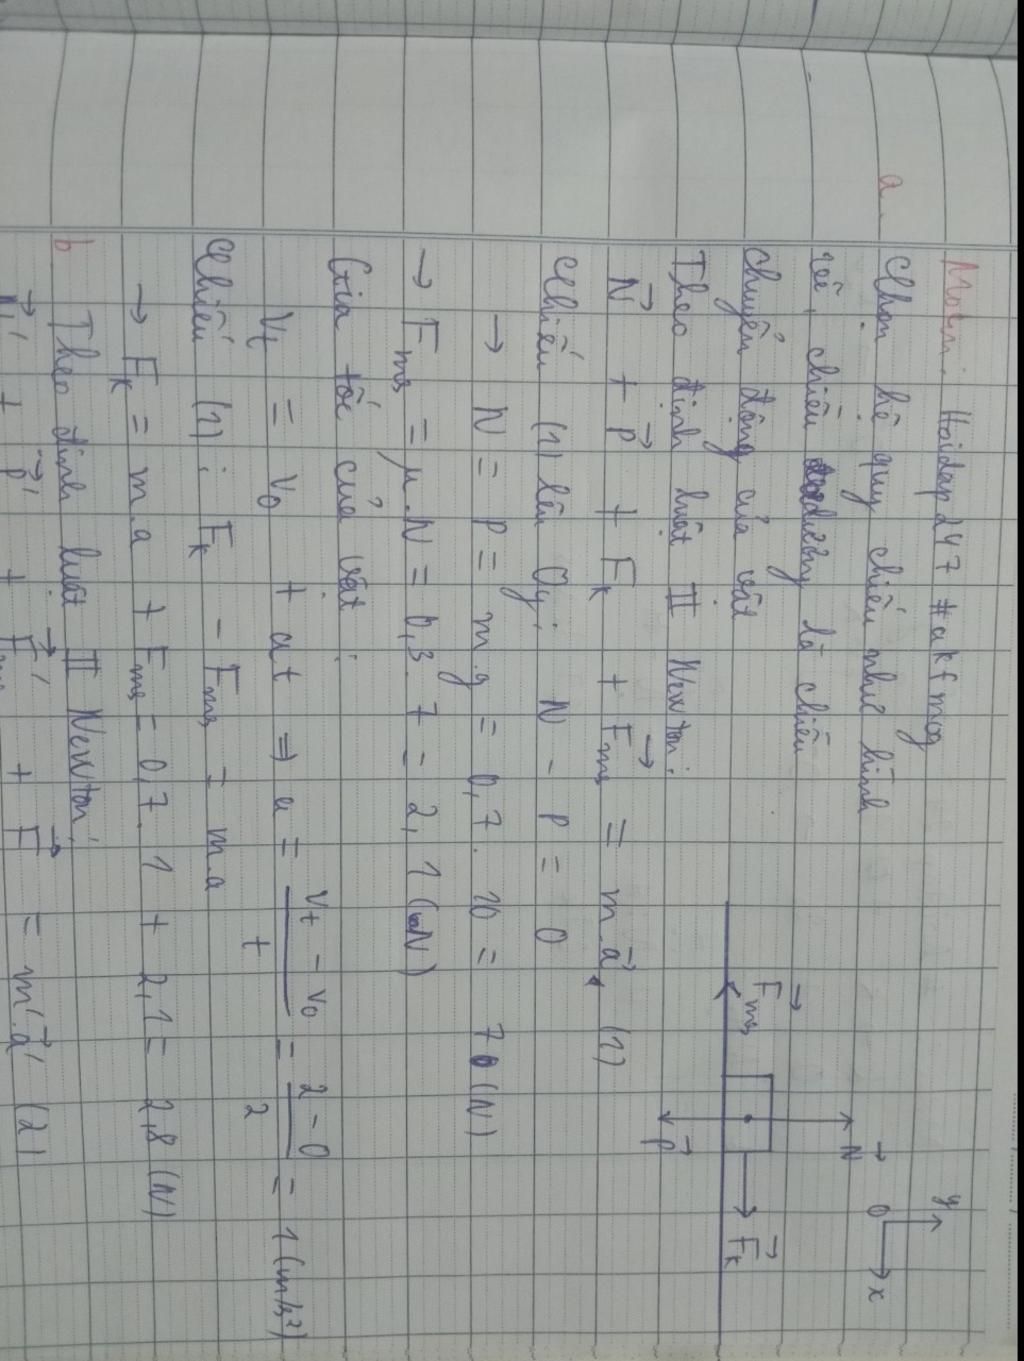 Mukin. Hoidap247 #akfmog
a. Chọn hệ quy chiếu như hình
vẽ, chiều dương là chiều
chuyển động của vật
y
O x
N→
Fms→
Fk→
P→
Theo định luật II Newton:
N→ + P→ + Fk→ + Fms→ = m.a→ (1)
Chiếu (1) lên Oy: N - P = 0
→ N = P = m.g = 0,7. 10 = 7 (N)
→ Fms = μ.N = 0,3. 7 = 2,1 (N)
Gia tốc của vật:
vt = v0 + at ⇒ a = (vt - v0)/t = (2 - 0)/2 = 1 (m/s²)
Chiếu (1): Fk - Fms = m.a
→ Fk = m.a + Fms = 0,7. 1 + 2,1 = 2,8 (N)
b Theo định luật II Newton:
N→' + P→' + Fms→' + F→ = m'.a→' (2)